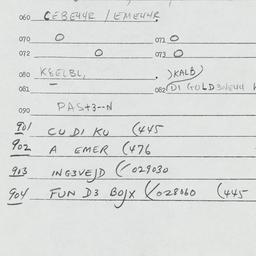 060 CEBE44R / EME44R
070 O 071 O
072 O 073 O
080 KEELBL, . )KALB)
081 082 (DI GOLD
090 PAST3--N
901 CU DI KU (445
902 A EMER (476
903 ING3VEJD (/029030
904 FUN D3 BOJX (/028060 (445